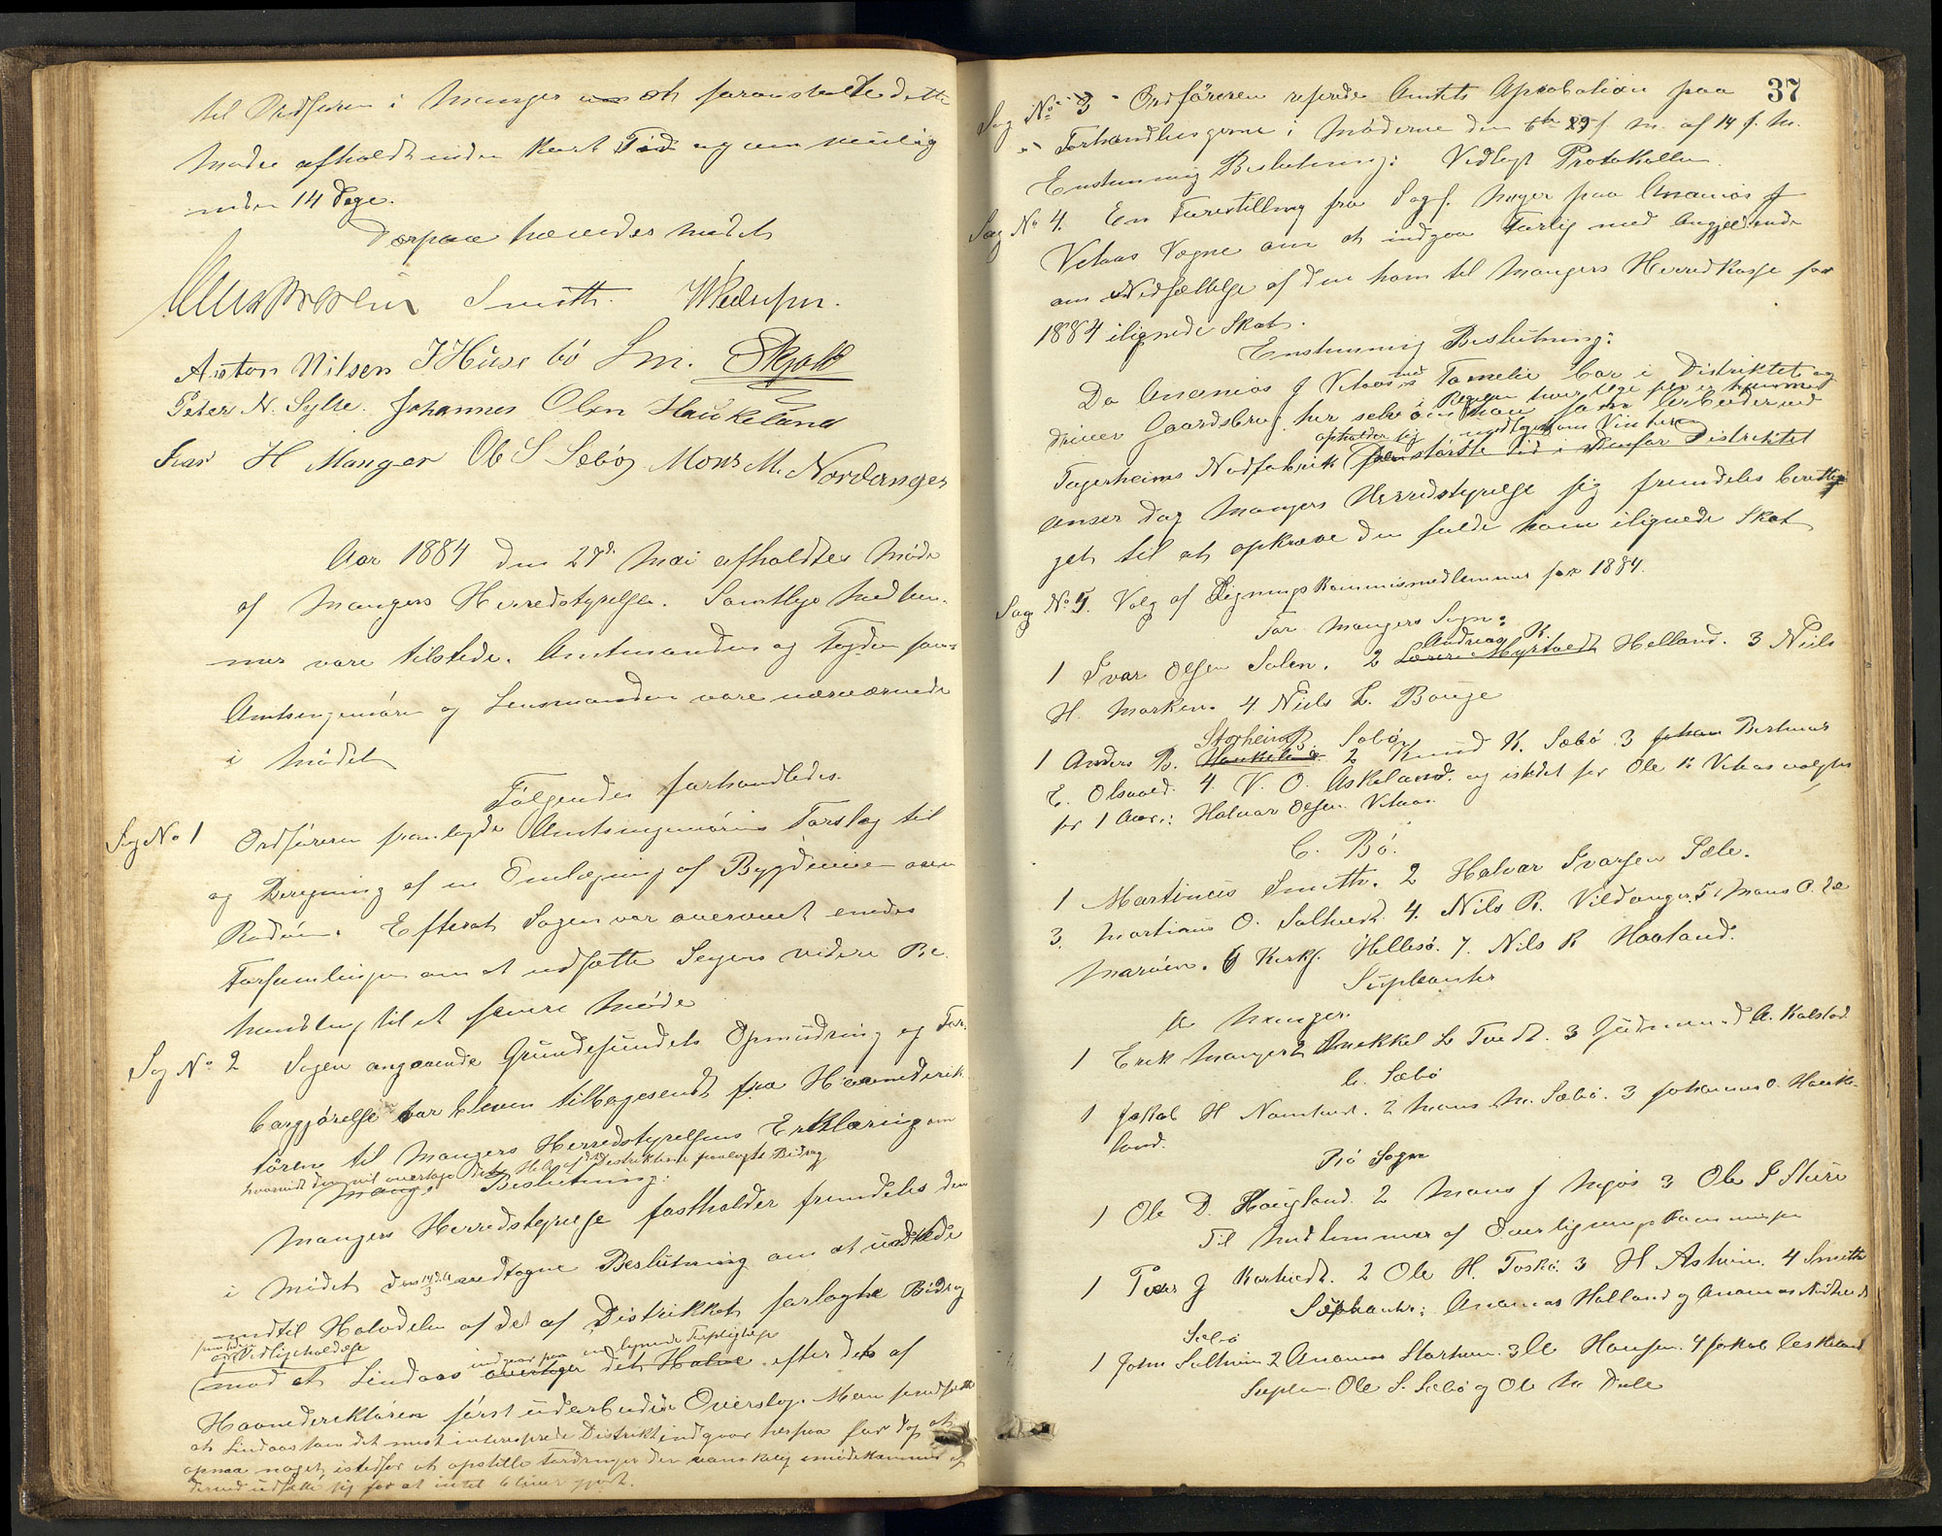 til Ordføreren i Manger at foranstalte dette
Møde afholdt inden kort Tid og om muelig
inden 14 Dage.
Derpaa hævedes mødet
Smith. WPedersen.
Anton Nilsen J Husebö Sm. Skjold
Peter N. Sylte. Johannes Olsen Haukeland
Ivar H Manger Ole S Sæbö Mons M. Nordanger
Aar 1884 den 27d. Mai afholdtes Møde
af Mangers Herredstyrelse. Samtlige Medlem-
mer vare tilstede. Amtmanden og Fogden samt
Amtsingeniøren og Lensmanden vare nærværende
i Mødet
Følgende forhandledes.
Sag No 1 Ordføreren fremlagde Amtsingeniørens Forslag til
og Beregning af en Omlægning af Bygdeveien over
Radøen. Efterat Sagen var overveiet enedes
Forsamlingen om at udsætte Sagens videre Be-
handling til et senere Møde
Sag No 2 Sagen angaaende Grundesundets Opmudring og Far-
bargjørelse var bleven tilbagesendt fra Havnedirek-
tören til Mangers Herredstyrelses Erklæring om
hvorvidt den vil overtage det Hele af Distrikterne forlangte Bidrag
Beslutning:
Mangers Herredstyrelse fastholder fremdeles den
i Mødet den vedtagne Beslutning om at udrede
indtil Halvdelen af det af Distriktet forlangte Bidrag
og Vedligeholdelse
indgaar paa en lignende Forpligtelse
mod at Lindaas overtager det Halve efter det af
Havnedirektören först udarbeidede Overslag. Man
at Lindaas som det mest interesserede Distrikt indgaar herpaa for dog at
opnaa noget, istedfor at opstille Fordringer der vanskelig imødekommes og
derved udsætte sig for at intet bliver gjort.
37
Sag No. 3 Ordföreren referede Amtets Aprobation paa
Forhandlingerne i Møderne den 29 f. M. af 14 f. M.
Enstemmig Beslutning: Vedlagt Protokollen.
Sag No 4. En Forestilling fra Sagf. Meyer paa Ananias J
Vetaas Vegne om at indgaa Forlig med Angjeldende
om Nedsættelse af den ham til Mangers Herredkasse for
1884 ilignede Skat.
Enstemmig Beslutning:
Da Ananias J Vetaas med Familie bor i Distriktet og
driver Gaardsbrug her selv om han som Arbeider ved
i Regelen hver Uge per er hjemme
opholder sig Vinteren
Fagerheims Nodfabrik den största Tid i udenfor Distriktet
anser dog Mangers Herredstyrelse sig fremdeles beretti-
get til at opkræve den fulde ham ilignede Skat
Sag No 5. Valg af Ligningskommissmedlemmer for 1884.
For Mangers Sogn:
Andreas K.
1 Ivar Olsen Solem. 2 Lærer Myrtvedt Helland. 3 Niels
H. Marken. 4 Niels L. Bouge
Storheim Sæbø
1 Anders B. Haukeland. 2 Knud K. Sæbö. 3 Johan Bertinus
E. Olsvold. 4. V. O. Askeland. og istedet for Ole K Vetaas valgtes
for 1 Aar: Halvar Olsen Vetaas.
C. Bö.
1 Martinus Smith. 2 Halvar Ivarsen Sæle.
3. Martinus O. Soltvedt. 4. Nils R. Vildanger. 5. Mons O.
Marøen. 6 Kirks. Hellesö. 7. Nils R Haaland.
Supleanter
A Manger.
1 Erik Manger 2 Mikkel L Tvedt. 3 Gudmund A. Kolstad
b. Sæbö
1 Jakob H Namtvedt. 2 Mons M. Sæbö. 3 Johannes O. Hauke-
land.
Bö Sogn
1 Ole D. Haugland. 2 Mons J Mjøs 3 Ole J Sture
Til Medlemmer af Overligningskommissen
1 Peder J Kartvedt. 2 Ole H. Toskö. 3 H Askeim. 4 Smith
Supleanter: Ananias Holland og Ananias
Sæbø
1 John Soltveim 2 Ananias Storheim. 3 Ole Hansen. 4 Jakob Askeland
Suplean. Ole S. Sæbö og Ole M Dale